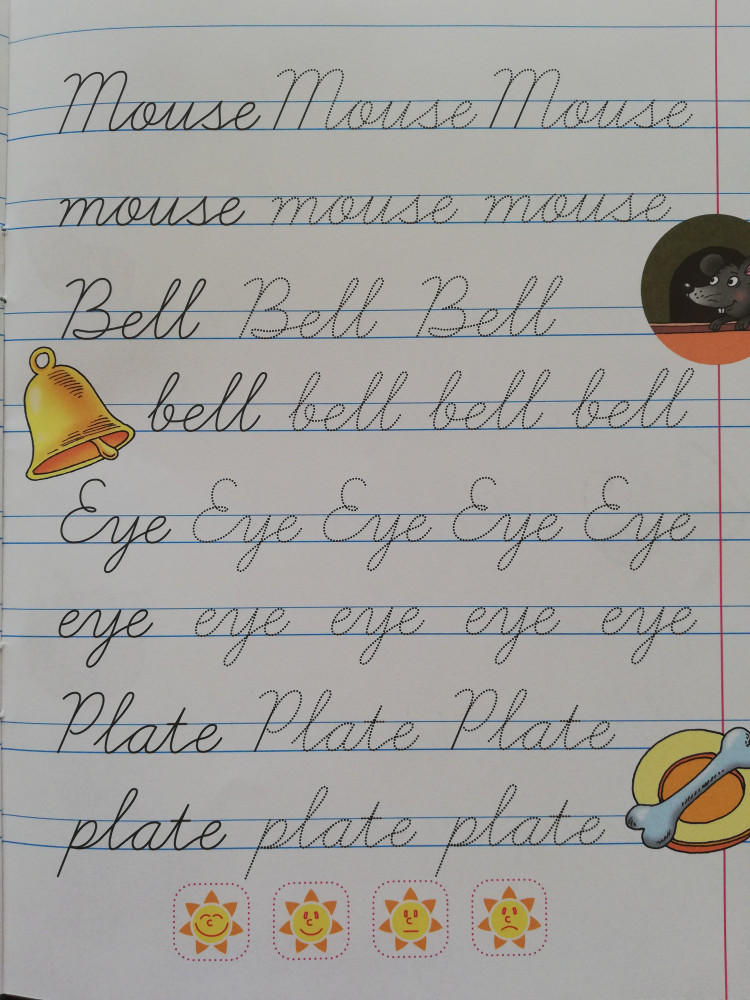 Mouse Mouse Mouse
mouse mouse mouse
Bell Bell Bell
bell bell bell bell
Eye Eye Eye Eye Eye
eye eye eye eye eye
Plate Plate Plate
plate plate plate